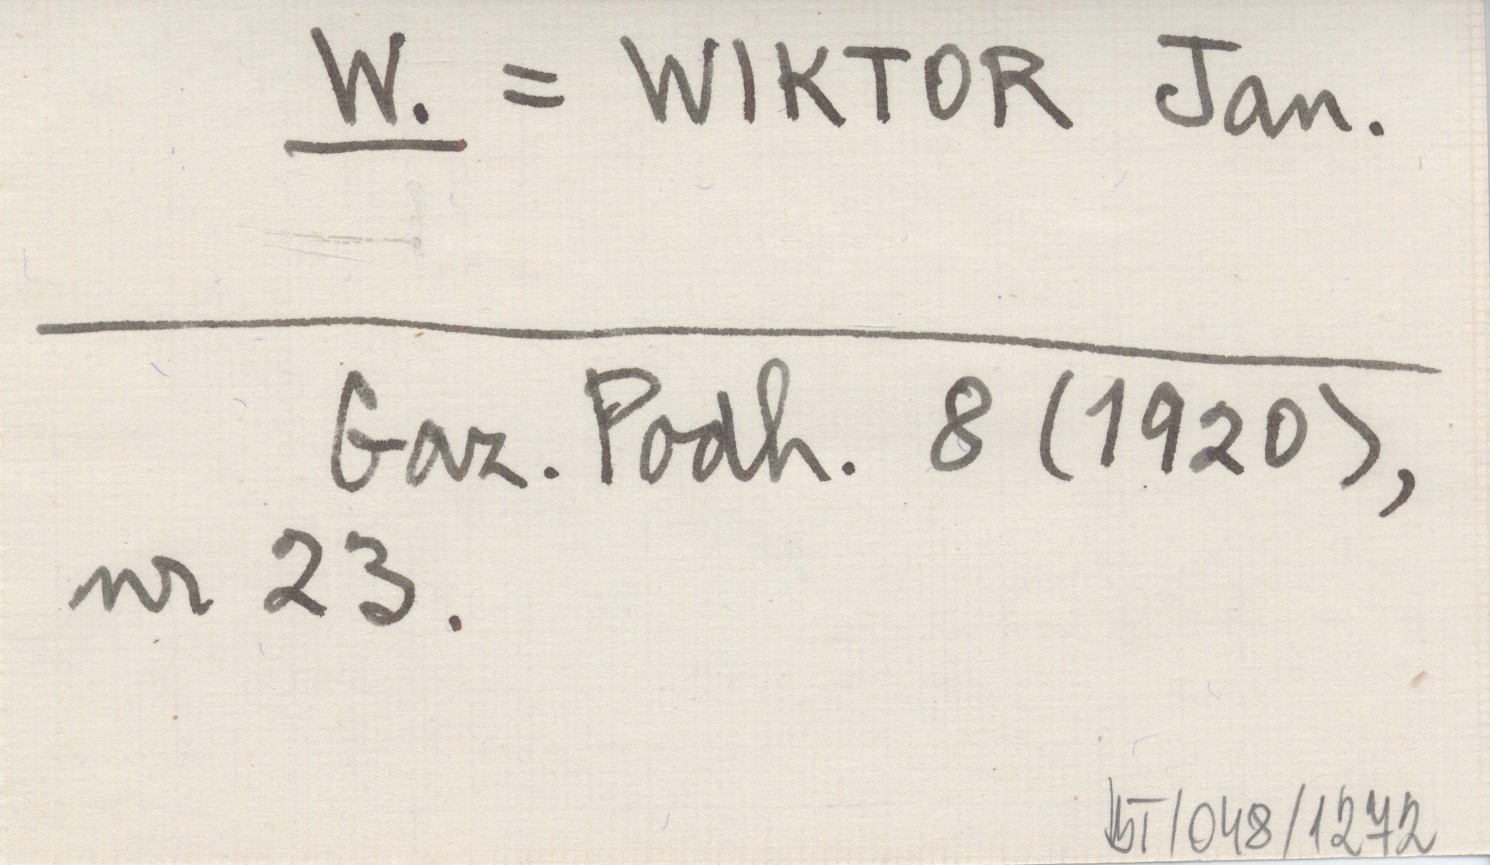 W. = WIKTOR Jan.
Gaz. Podh. 8 (1920),
nr 23.
/048/1272